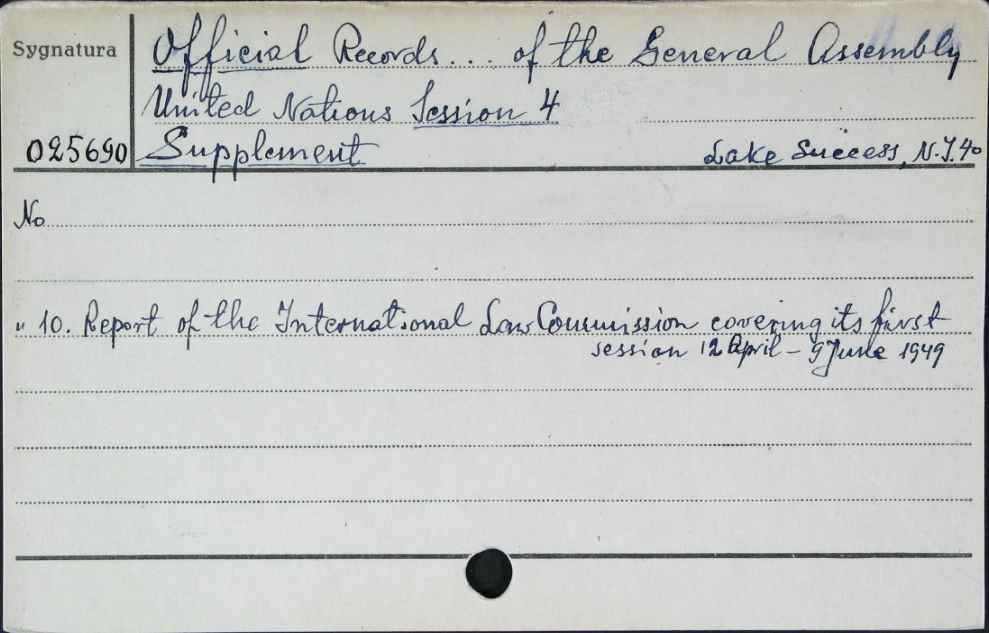 Sygnatura
Official Records... of the General Assembly
United Nations Session 4
025690 Supplement Lake Success, N.Y. 40
No
" 10. Report of the International Law Commission covering its first
session 12 April - 9 June 1949